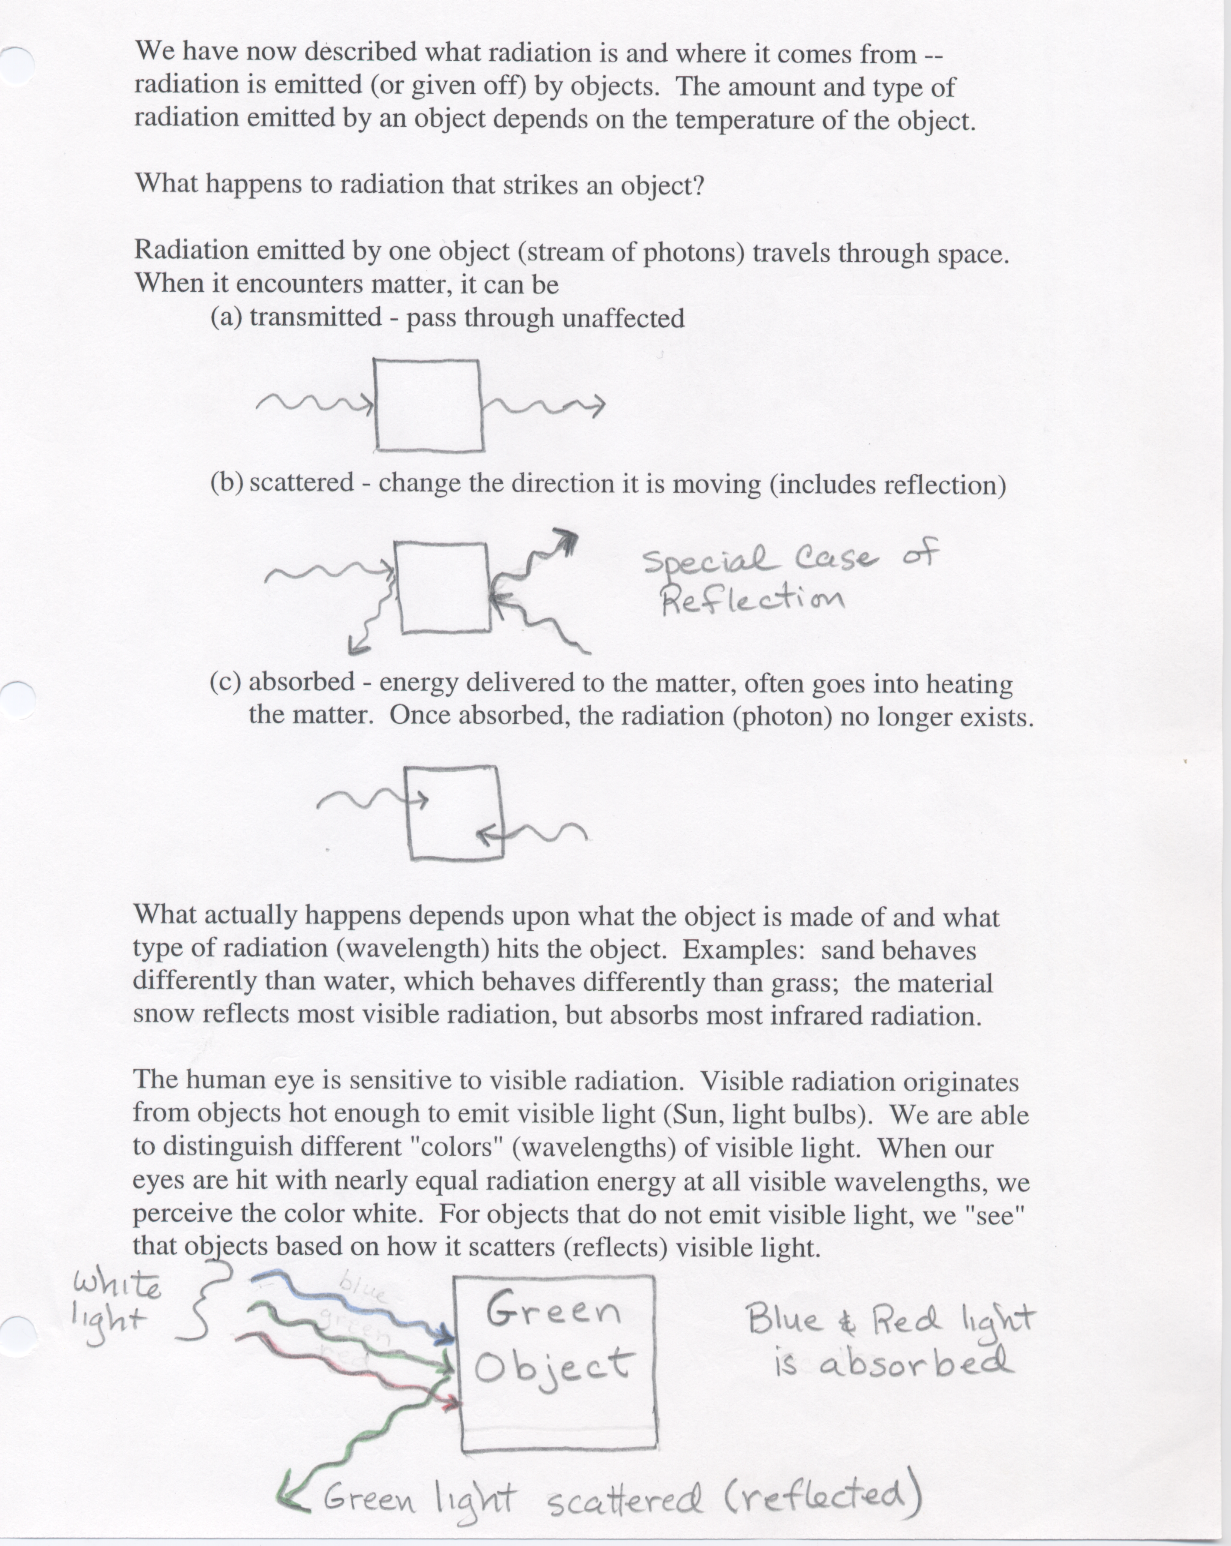 We have now described what radiation is and where it comes from --
radiation is emitted (or given off) by objects.  The amount and type of
radiation emitted by an object depends on the temperature of the object.
What happens to radiation that strikes an object?
Radiation emitted by one object (stream of photons) travels through space.
When it encounters matter, it can be
(a) transmitted - pass through unaffected
(b) scattered - change the direction it is moving (includes reflection)
Special Case of
Reflection
(c) absorbed - energy delivered to the matter, often goes into heating
the matter.  Once absorbed, the radiation (photon) no longer exists.
What actually happens depends upon what the object is made of and what
type of radiation (wavelength) hits the object.  Examples:  sand behaves
differently than water, which behaves differently than grass;  the material
snow reflects most visible radiation, but absorbs most infrared radiation.
The human eye is sensitive to visible radiation.  Visible radiation originates
from objects hot enough to emit visible light (Sun, light bulbs).  We are able
to distinguish different "colors" (wavelengths) of visible light.  When our
eyes are hit with nearly equal radiation energy at all visible wavelengths, we
perceive the color white.  For objects that do not emit visible light, we "see"
that objects based on how it scatters (reflects) visible light.
white
light
blue
green
red
Green
Object
Blue & Red light
is absorbed
Green light scattered (reflected)